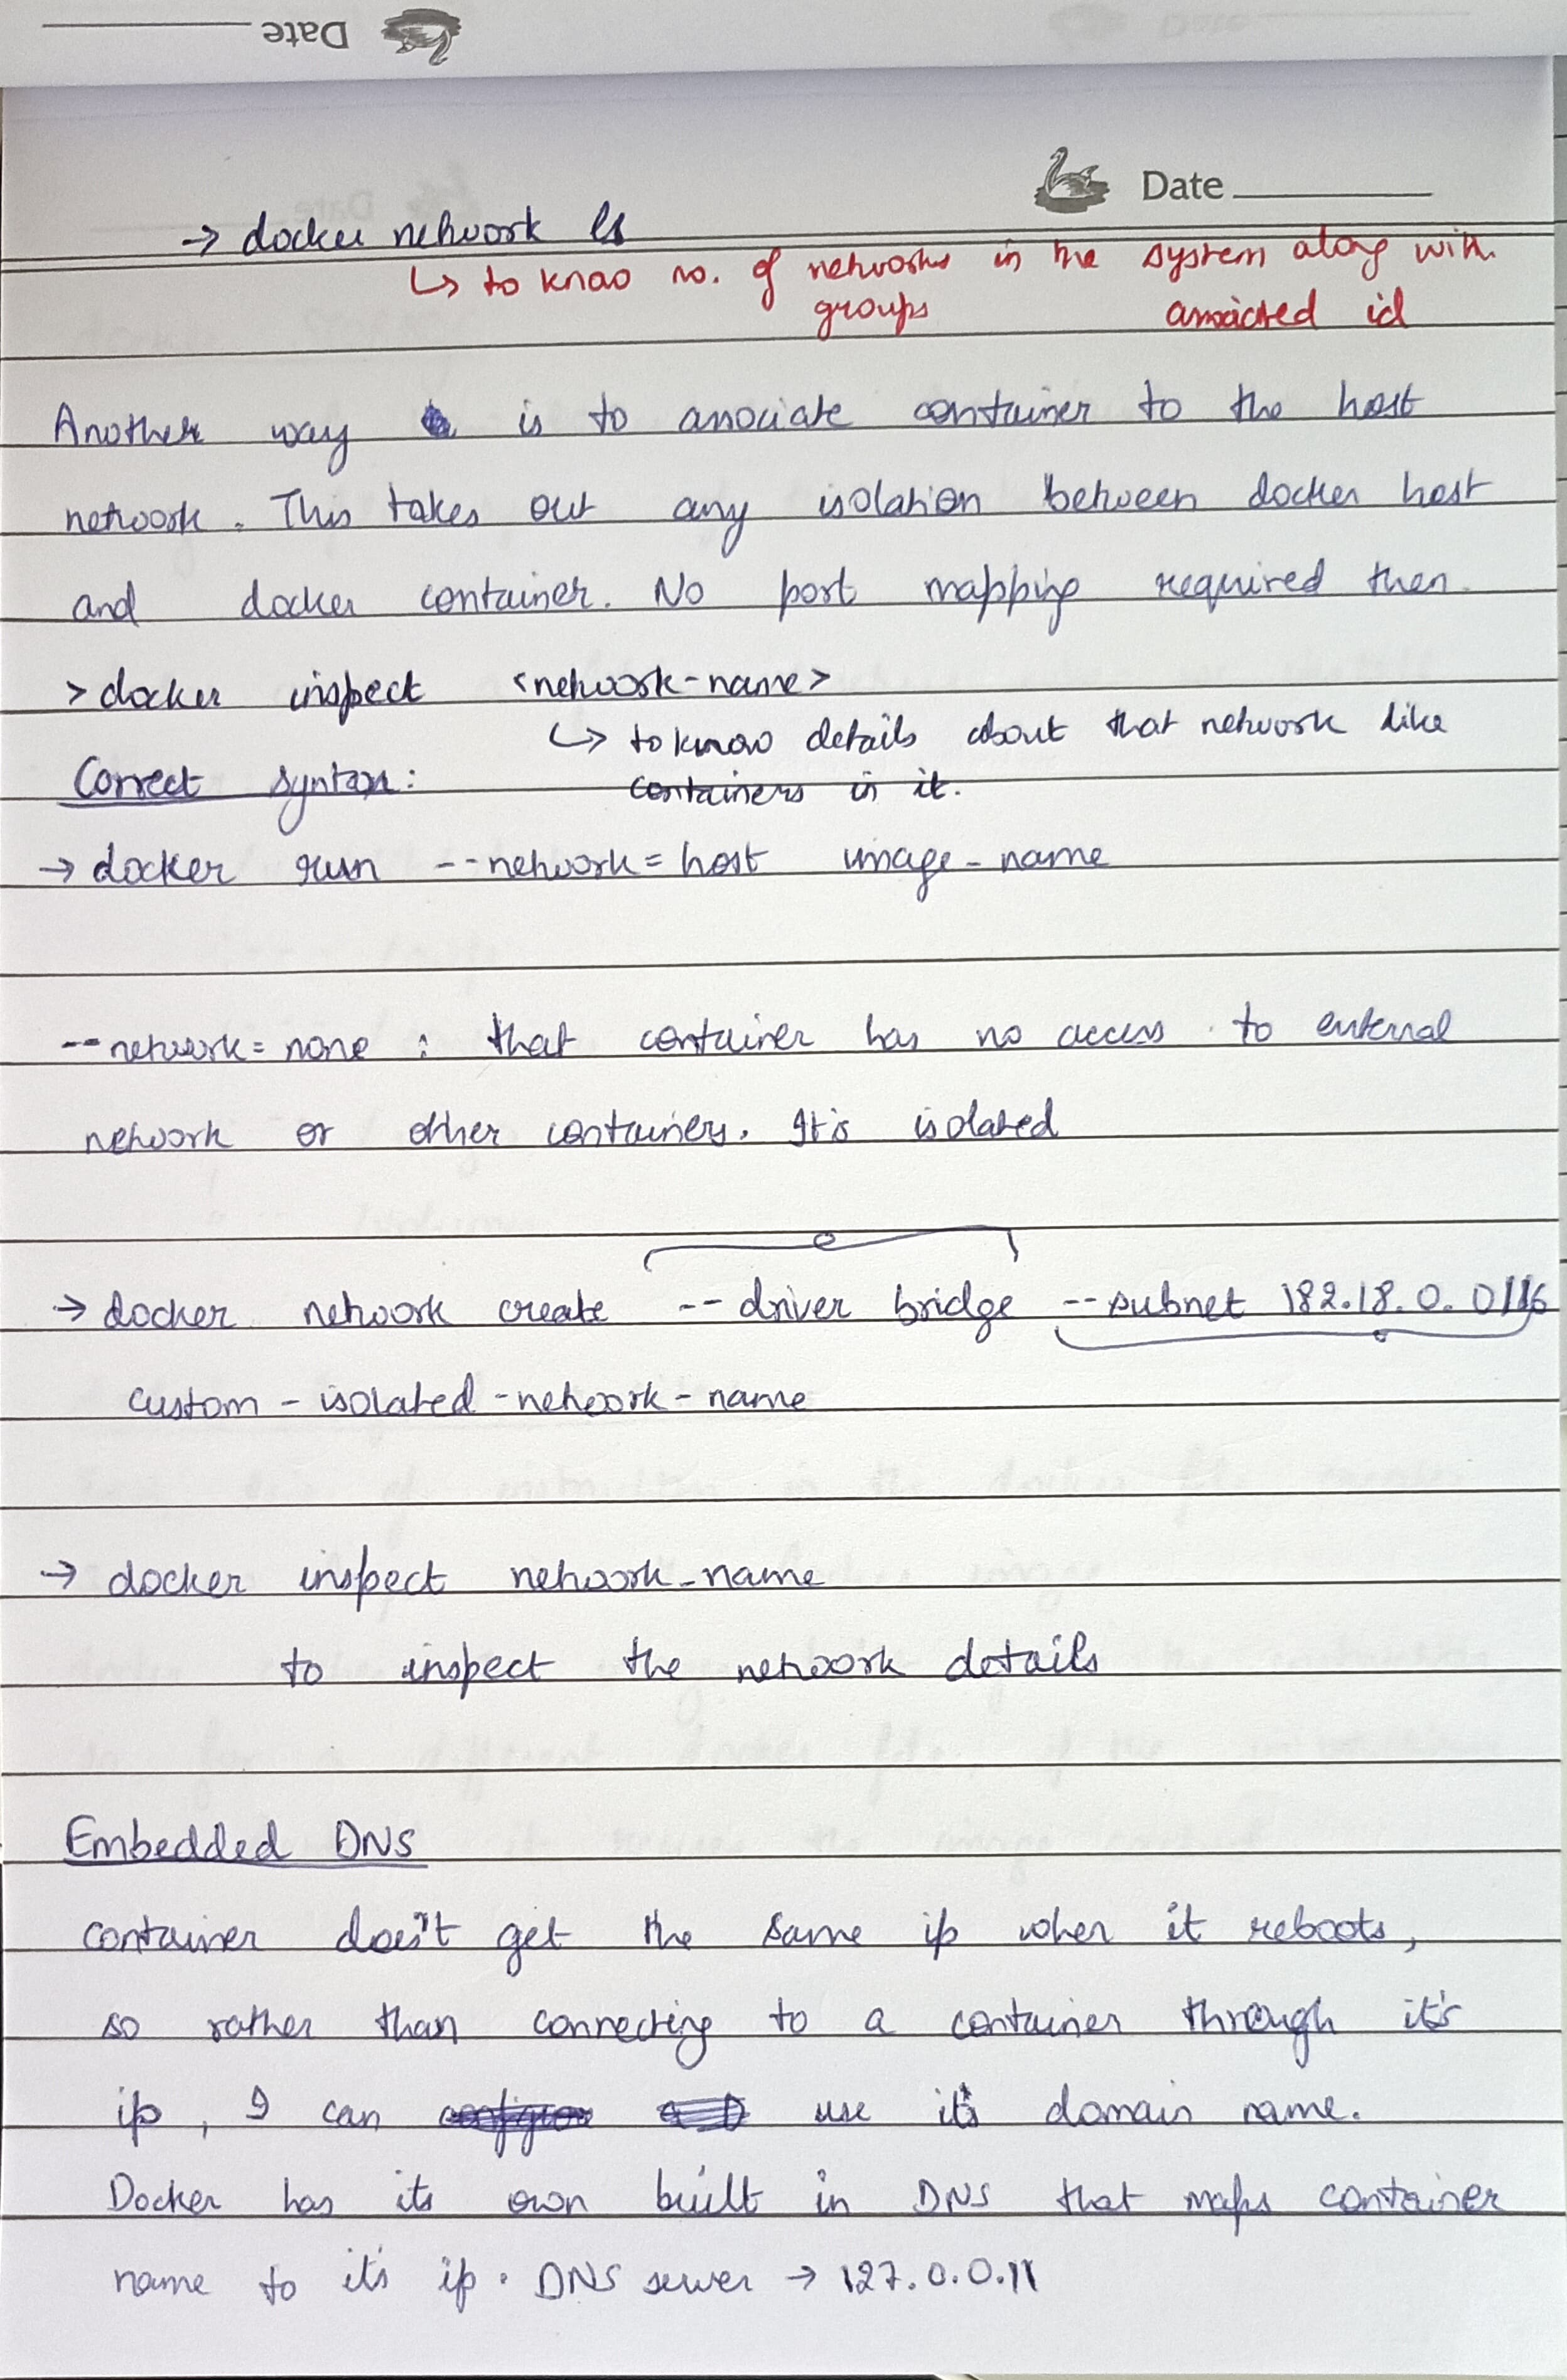 Date
Date
→ docker network ls
↳ to know no. of networks in the system along with
groups associated id
Another way is to associate container to the host
network. This takes out any isolation between docker host
and docker container. No port mapping required then.
> docker inspect <network-name>
↳ to know details about that network like
Correct syntax: containers in it.
→ docker run --network=host image-name
--network=none : that container has no access to external
network or other containers. It's isolated
→ docker network create --driver bridge --subnet 182.18.0.0/16
custom-isolated-network-name
→ docker inspect network-name
to inspect the network details
Embedded DNS
container does't get the same ip when it reboots,
so rather than connecting to a container through it's
ip, I can use its domain name.
Docker has its own built in DNS that maps container
name to it's ip. DNS server → 127.0.0.11